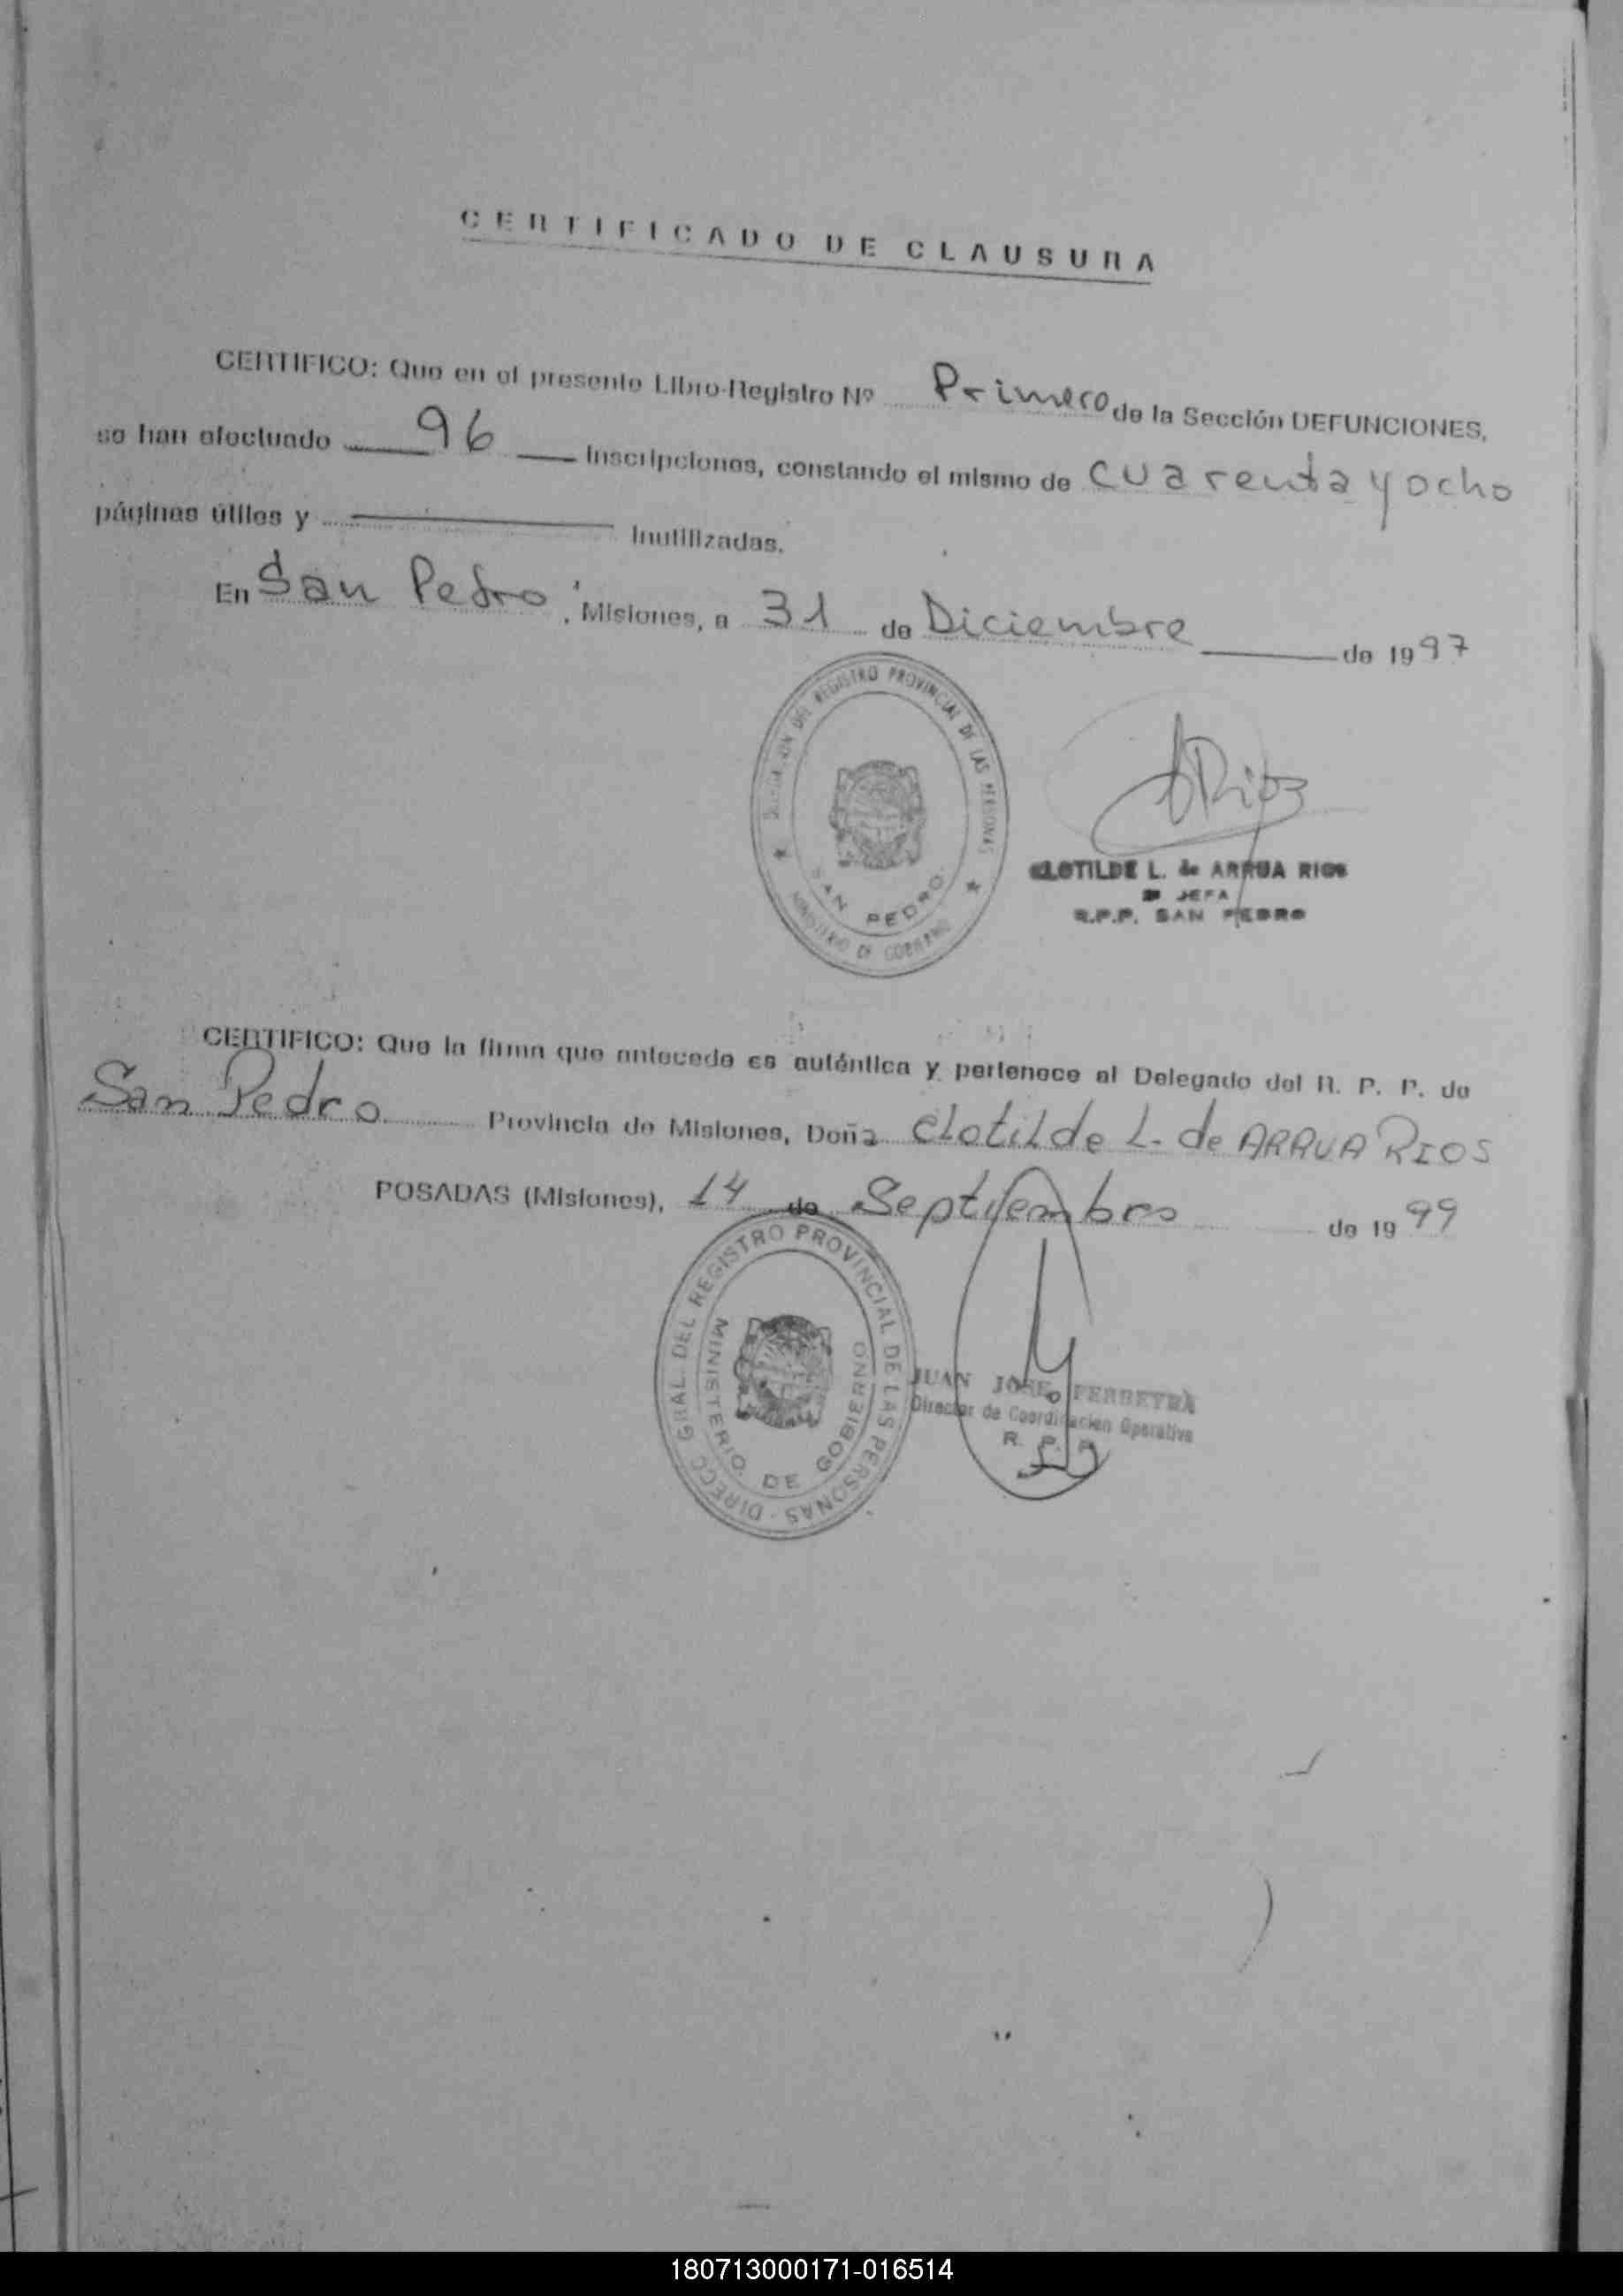 CERTIFICADO DE CLAUSURA
CERTIFICO: Que en el presente Libro-Registro Nº Primero de la Sección DEFUNCIONES,
se han efectuado 96 Inscripciones, constando el mismo de cuarenta y ocho
páginas útiles y Inutilizadas.
En San Pedro, Misiones, a 31 de Diciembre de 1997
DELEGACION DEL REGISTRO PROVINCIAL DE LAS PERSONAS
SAN PEDRO
MINISTERIO DE GOBIERNO
ARios
CLOTILDE L. de ARRUA RIOS
JEFA
R.P.P. SAN PEDRO
CERTIFICO: Que la firma que antecede es auténtica y pertenece al Delegado del R. P. P. de
San Pedro Provincia de Misiones, Doña Clotilde L. de ARRUA RIOS
POSADAS (Misiones), 14 de Septiembre de 1999
DIRECC GRAL. DEL REGISTRO PROVINCIAL DE LAS PERSONAS -
MINISTERIO DE GOBIERNO
JUAN JOSE FERREYRA
Director de Coordinacion Operativa
R. P. P.
180713000171-016514